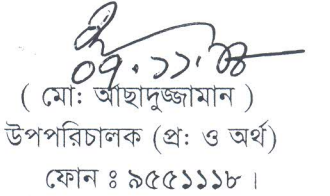 ০৭.১১.
( মোঃ আছাদুজ্জামান )
উপপরিচালক (প্রঃ ও অর্থ)
ফোন ঃ ৯৫৫১১১৮ ।